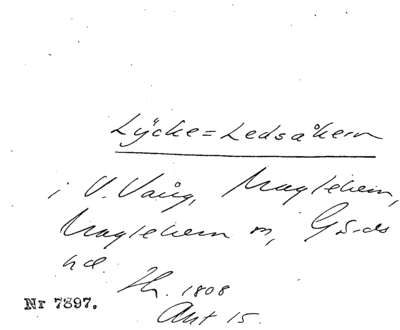 Lÿcke=Ledsåkern
i V. Vång, Maglehem,
Maglehem sn, Gärds
hd.
Jh. 1808
Akt 15.
Nr 7897.